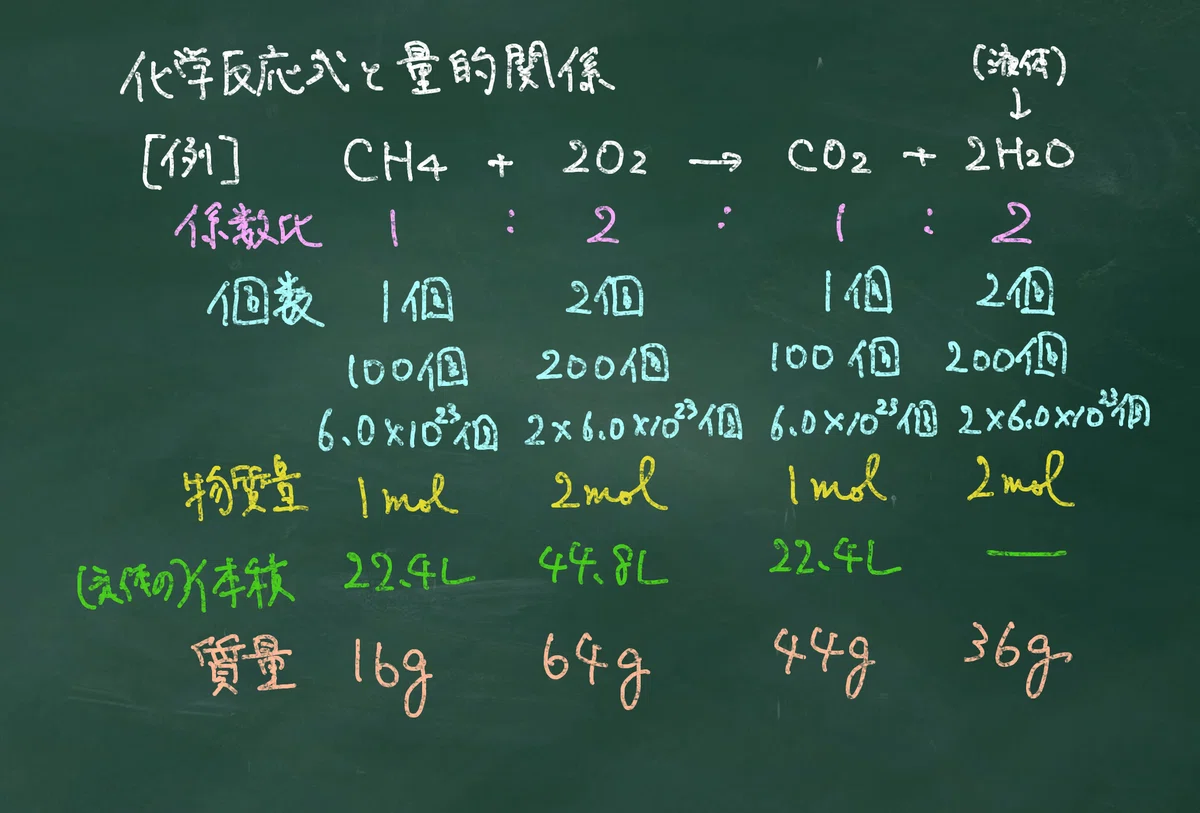 化学反応式と量的関係
(液体)
↓
[例] CH4 + 2O2 → CO2 + 2H2O
係数比 1 : 2 : 1 : 2
個数 1個 2個 1個 2個
100個 200個 100個 200個
6.0×10²³個 2×6.0×10²³個 6.0×10²³個 2×6.0×10²³個
物質量 1mol 2mol 1mol 2mol
(気体の)体積 22.4L 44.8L 22.4L —
質量 16g 64g 44g 36g